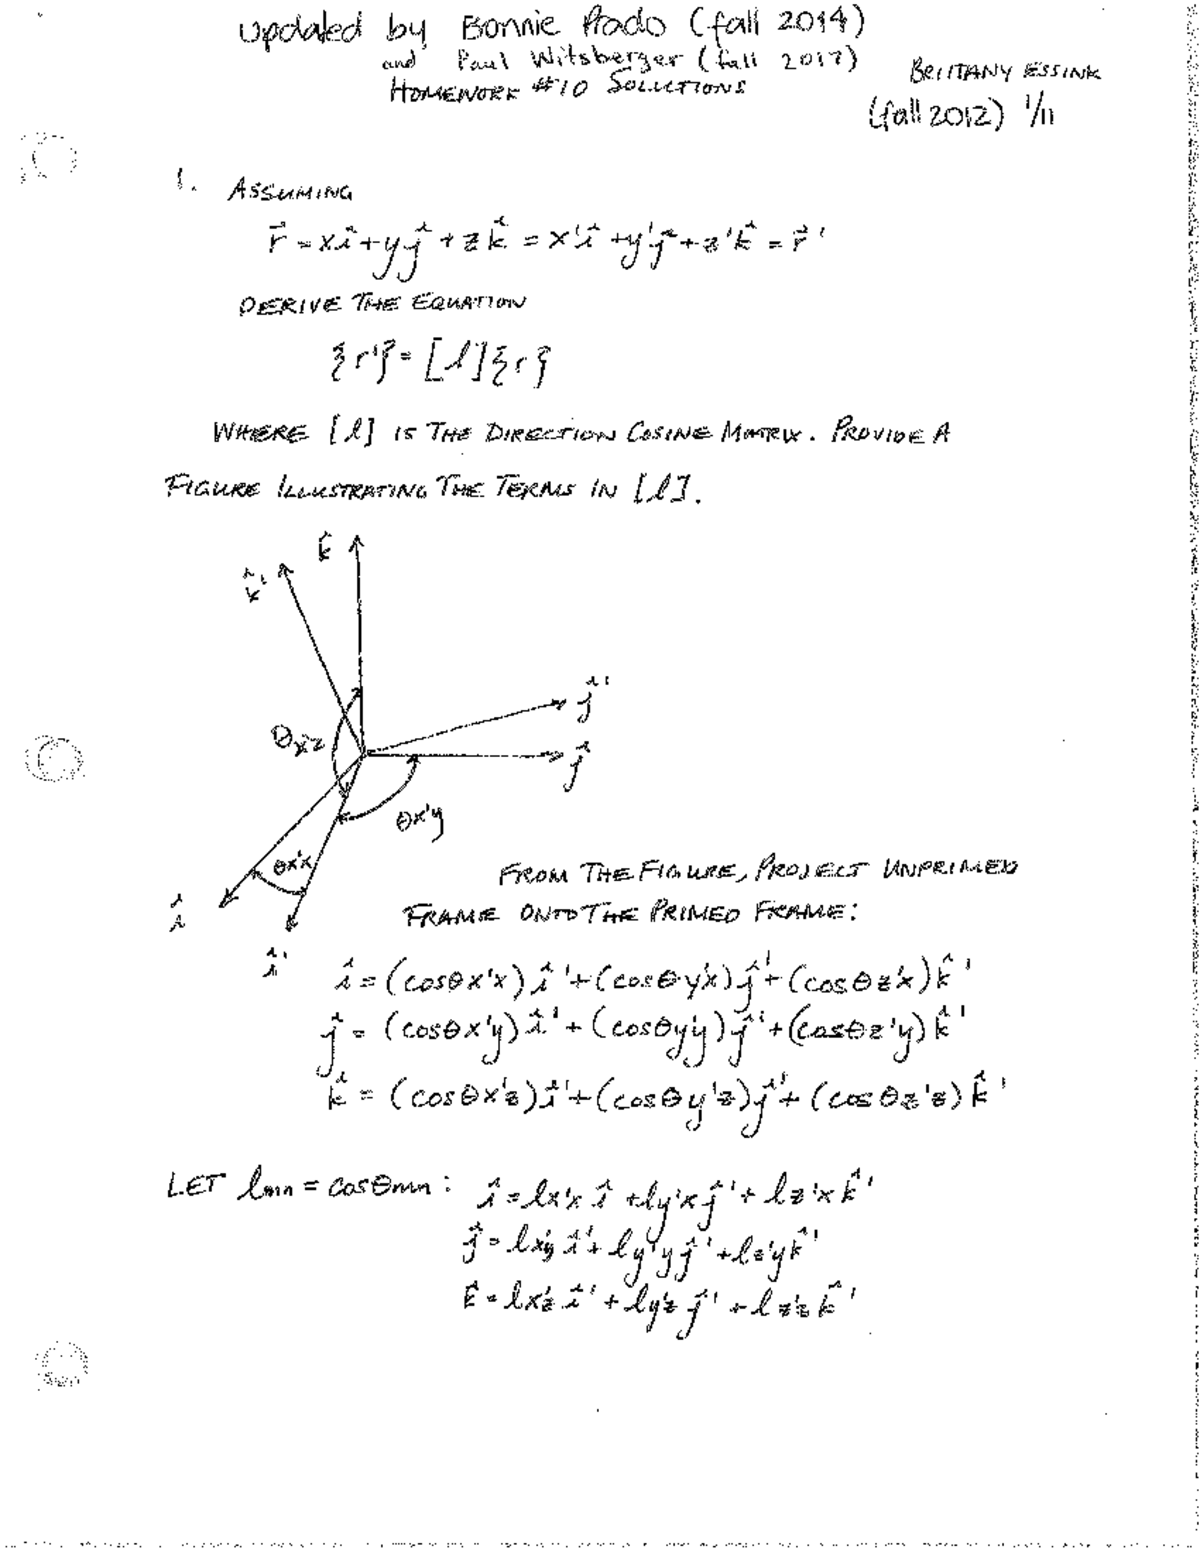 updated by Bonnie Prado (fall 2014)
and Paul Witsberger (fall 2017)
HOMEWORK #10 SOLUTIONS
BRITTANY ESSINK
(fall 2012) 1/11
1. ASSUMING
r⃗ = xî + yĵ + zk̂ = x'î + y'ĵ + z'k̂ = r⃗'
DERIVE THE EQUATION
{r'} = [l]{r}
WHERE [l] IS THE DIRECTION COSINE MATRIX. PROVIDE A
FIGURE ILLUSTRATING THE TERMS IN [l].
k̂
k̂'
ĵ'
θx'z
ĵ
θx'y
θx'x
î
î'
FROM THE FIGURE, PROJECT UNPRIMED
FRAME ONTO THE PRIMED FRAME:
î = (cosθx'x) î' + (cosθy'x) ĵ' + (cosθz'x) k̂'
ĵ = (cosθx'y) î' + (cosθy'y) ĵ' + (cosθz'y) k̂'
k̂ = (cosθx'z) î' + (cosθy'z) ĵ' + (cosθz'z) k̂'
LET lmn = cosθmn: î = lx'x î + ly'x ĵ' + lz'x k̂'
ĵ = lx'y î' + ly'y ĵ' + lz'y k̂'
k̂ = lx'z î' + ly'z ĵ' + lz'z k̂'